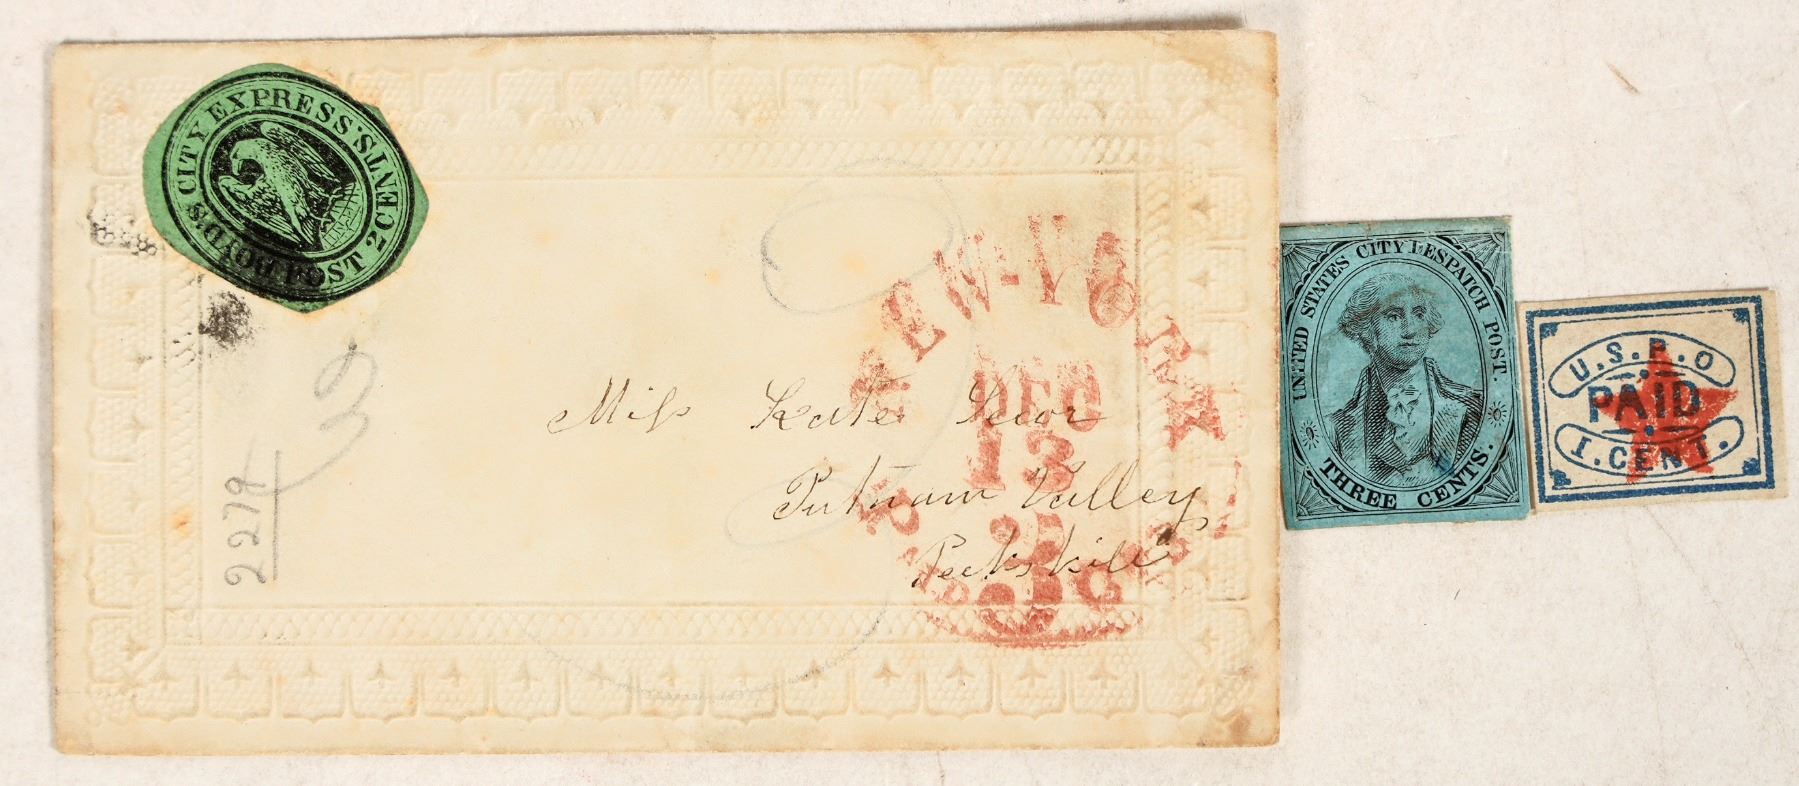 BOYD'S CITY EXPRESS POST 2 CENTS.
NEW-YORK
DEC
13
3 cts
Miss Kate Secor
Putnam Valley
Peekskill
2279
33
UNITED STATES CITY DESPATCH POST.
THREE CENTS.
U.S.P.O
PAID
1.CENT.